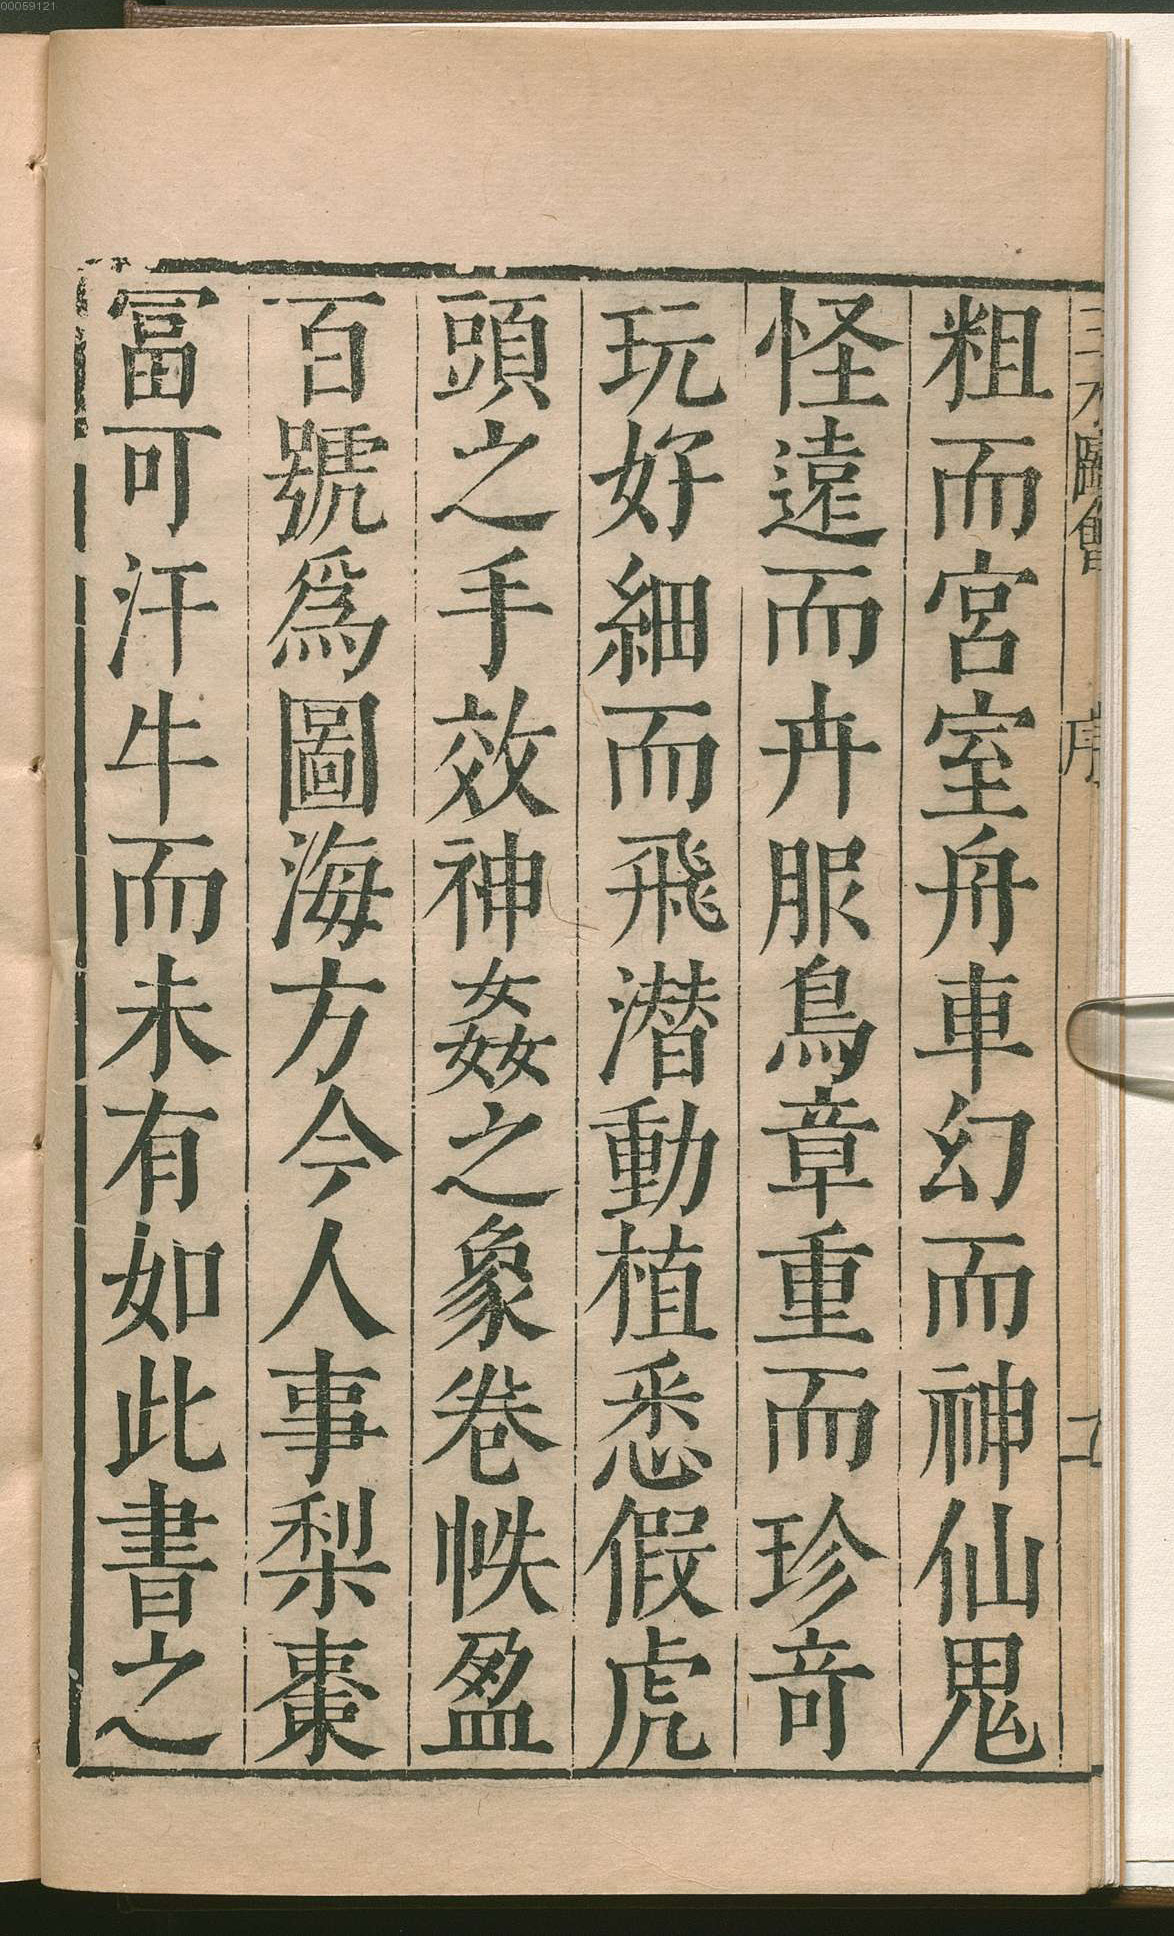 00059121
粗而宮室舟車幻而神仙鬼
怪遠而卉服鳥章重而珍竒
玩好細而飛潜動植悉假虎
頭之手效神姦之象卷帙盈
百號爲圖海方今人事梨棗
冨可汗牛而未有如此書之
圖會
序